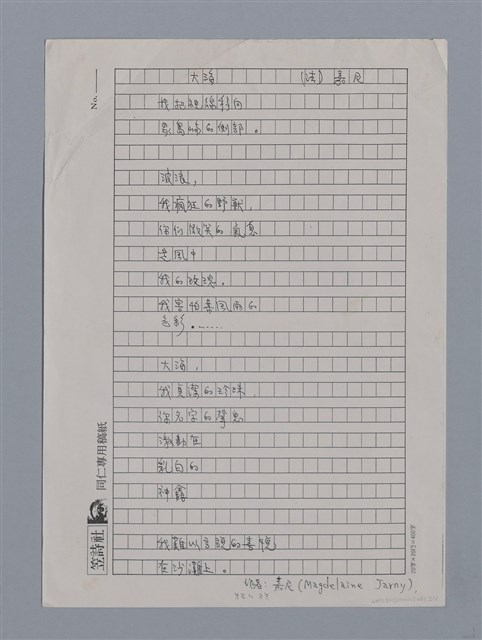 大海　　　(法) 嘉尼
我把視線轉向
象島嶼的側部。
波浪,
我瘋狂的野獸,
你們微笑的氣息
是風中
我的玫瑰。
我害怕暴風雨的
色彩。……
大海,
我貞潔的珍珠
你名字的聲息
激動在
乳白的
神龕
我難以言說的喜悅
在沙灘上。
作者: 嘉尼 (Magdelaine Jarny),
No.
笠詩社
同仁專用稿紙